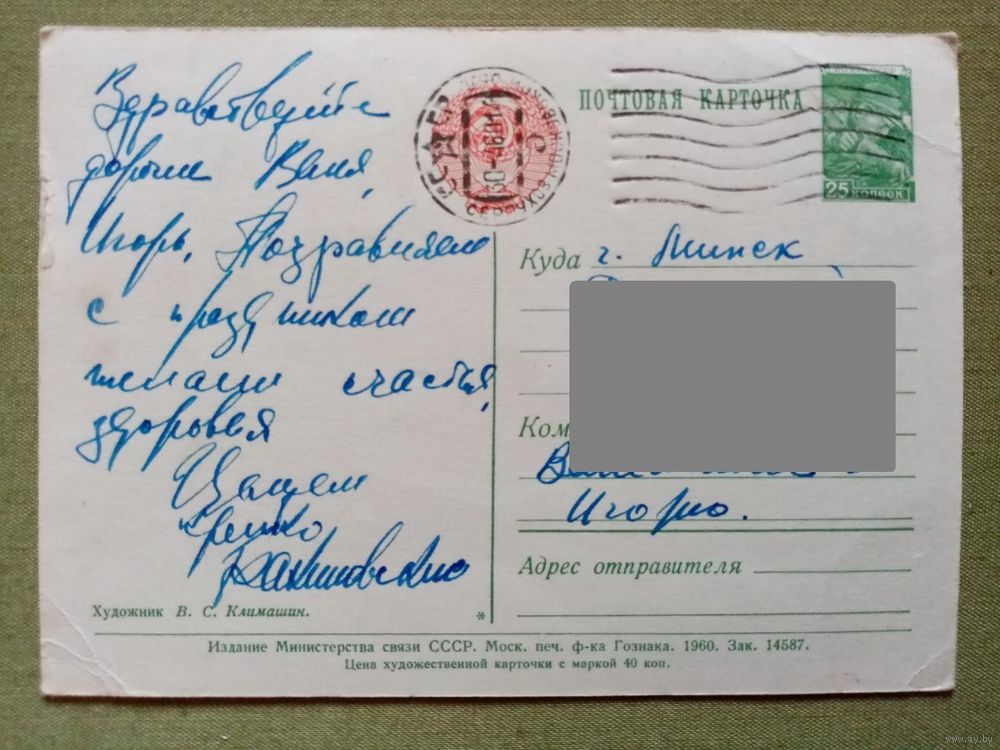 Здравствуйте
дорогие Ваня,
Игорь, Поздравляем
с праздником
желаем счастья,
здоровья
Целуем
крепко
ПОЧТОВАЯ КАРТОЧКА
25 КОПЕЕК
Куда г. Минск
Ком
Игорю.
Адрес отправителя
Художник В. С. Климашин.
*
Издание Министерства связи СССР. Моск. печ. ф-ка Гознака. 1960. Зак. 14587.
Цена художественной карточки с маркой 40 коп.
www.ay.by